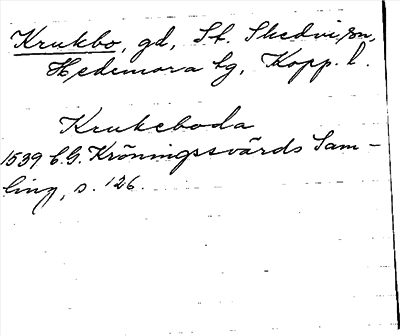 Krukbo, gd, St. Skedvi sn,
Hedemora tg, Kopp. l.
Krukeboda
1539 C.G. Kröningssvärds Sam-
ling, s. 126.